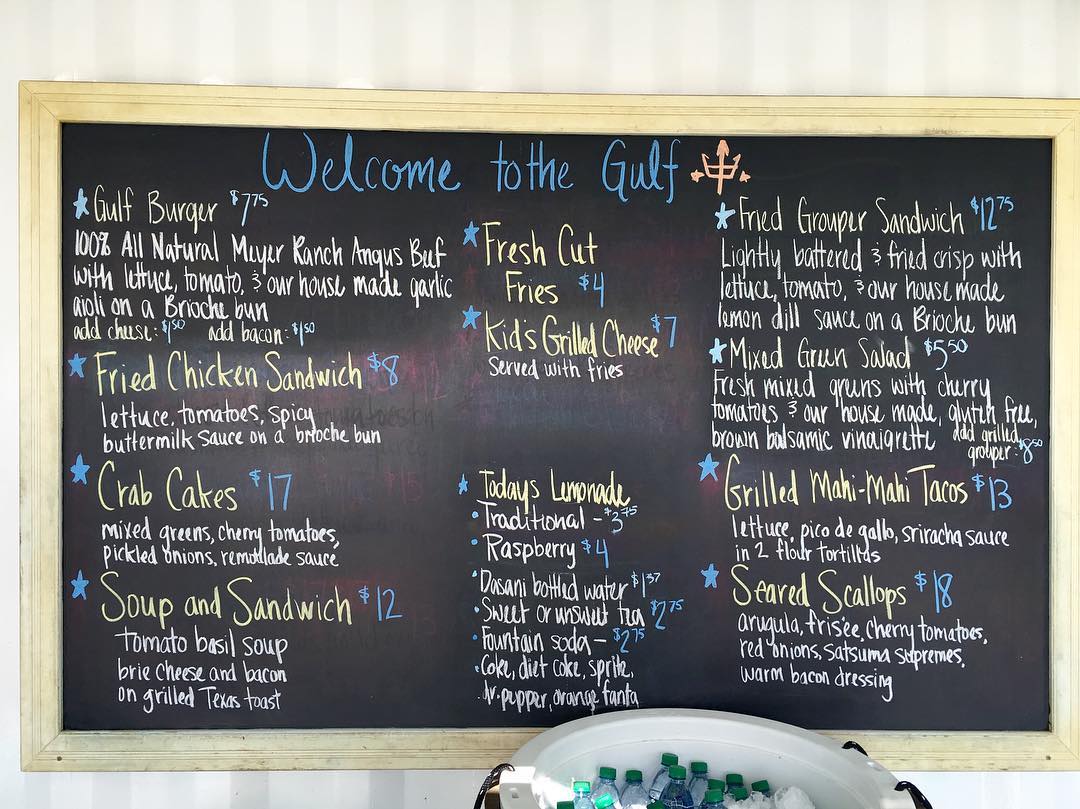 Welcome to the Gulf
Gulf Burger $7.75
100% All Natural Meyer Ranch Angus Beef
with lettuce, tomato, & our house made garlic
aioli on a Brioche bun
add cheese: $1.50 add bacon: $1.50
Fried Chicken Sandwich $8
lettuce, tomatoes, spicy
buttermilk sauce on a brioche bun
Crab Cakes $17
mixed greens, cherry tomatoes,
pickled onions, remoulade sauce
Soup and Sandwich $12
tomato basil soup
brie cheese and bacon
on grilled Texas toast
Fresh Cut
Fries $4
Kid's Grilled Cheese $7
Served with fries
Todays Lemonade
Traditional - $3.75
Raspberry $4
Dasani bottled water $1.37
Sweet or unsweet tea $2.75
Fountain soda - $2.75
Coke, diet coke, sprite,
dr. pepper, orange fanta
Fried Grouper Sandwich $12.75
Lightly battered & fried crisp with
lettuce, tomato, & our house made
lemon dill sauce on a Brioche bun
Mixed Green Salad $5.50
Fresh mixed greens with cherry
tomatoes & our house made, gluten free,
brown balsamic vinaigrette add grilled
grouper: $8.50
Grilled Mahi-Mahi Tacos $13
lettuce, pico de gallo, sriracha sauce
in 2 flour tortillas
Seared Scallops $18
arugula, frisée, cherry tomatoes,
red onions, satsuma supremes,
warm bacon dressing